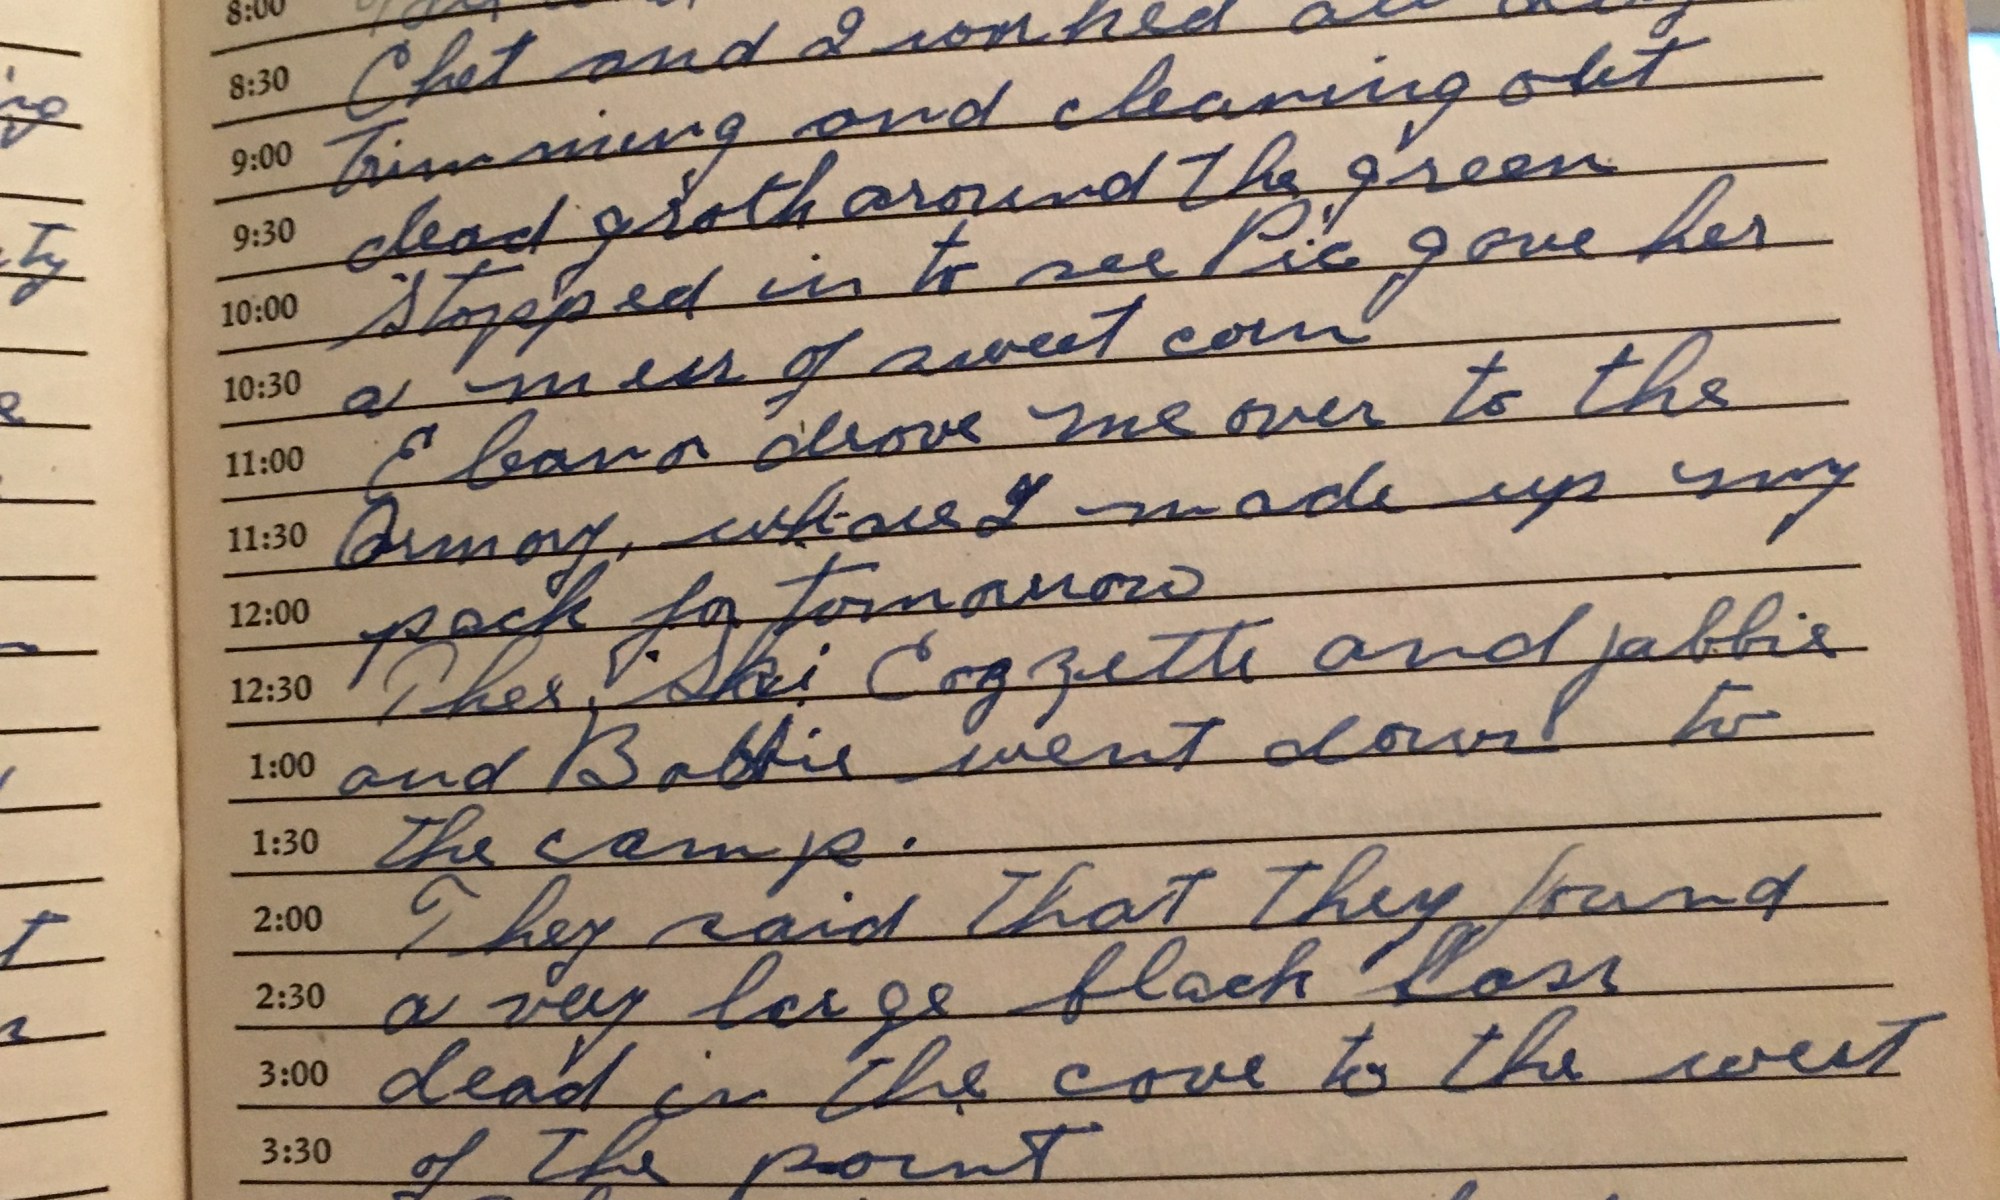 8:00
8:30 Chet and I worked all day
9:00 Trimming and cleaning out
9:30 dead groth around the green
10:00 Stopped in to see Pic gave her
10:30 a mess of sweet corn
11:00 Eleanor drove me over to the
11:30 Armory, where I made up my
12:00 pack for tomorrow
12:30 Ski and
1:00 and Bobbie went down to
1:30 the camp.
2:00 They said that they found
2:30 a very large black bass
3:00 dead in the cove to the west
3:30 of the point